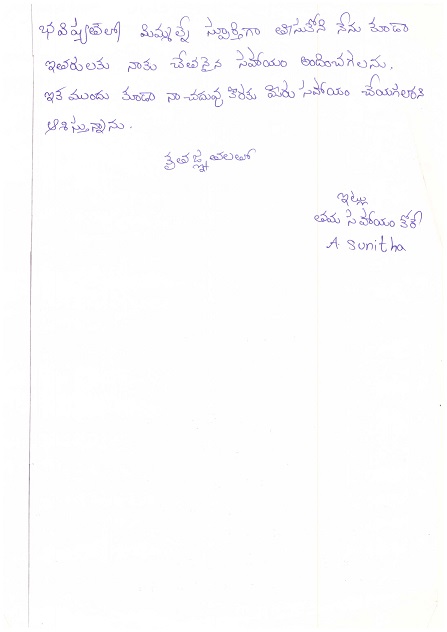 భవిష్యత్‌లో మిమ్మల్నే స్పూర్తిగా తీసుకొని నేను కూడా
ఇతరులకు నాకు చేతనైన సహాయం అందించగలను.
ఇక ముందు కూడా నా చదువు కొరకు మీరు సహాయం చేయగలరని
ఆశిస్తున్నాను.
కృతజ్ఞతలతో
ఇట్లు
తమ సహాయం కోరే
A Sunitha